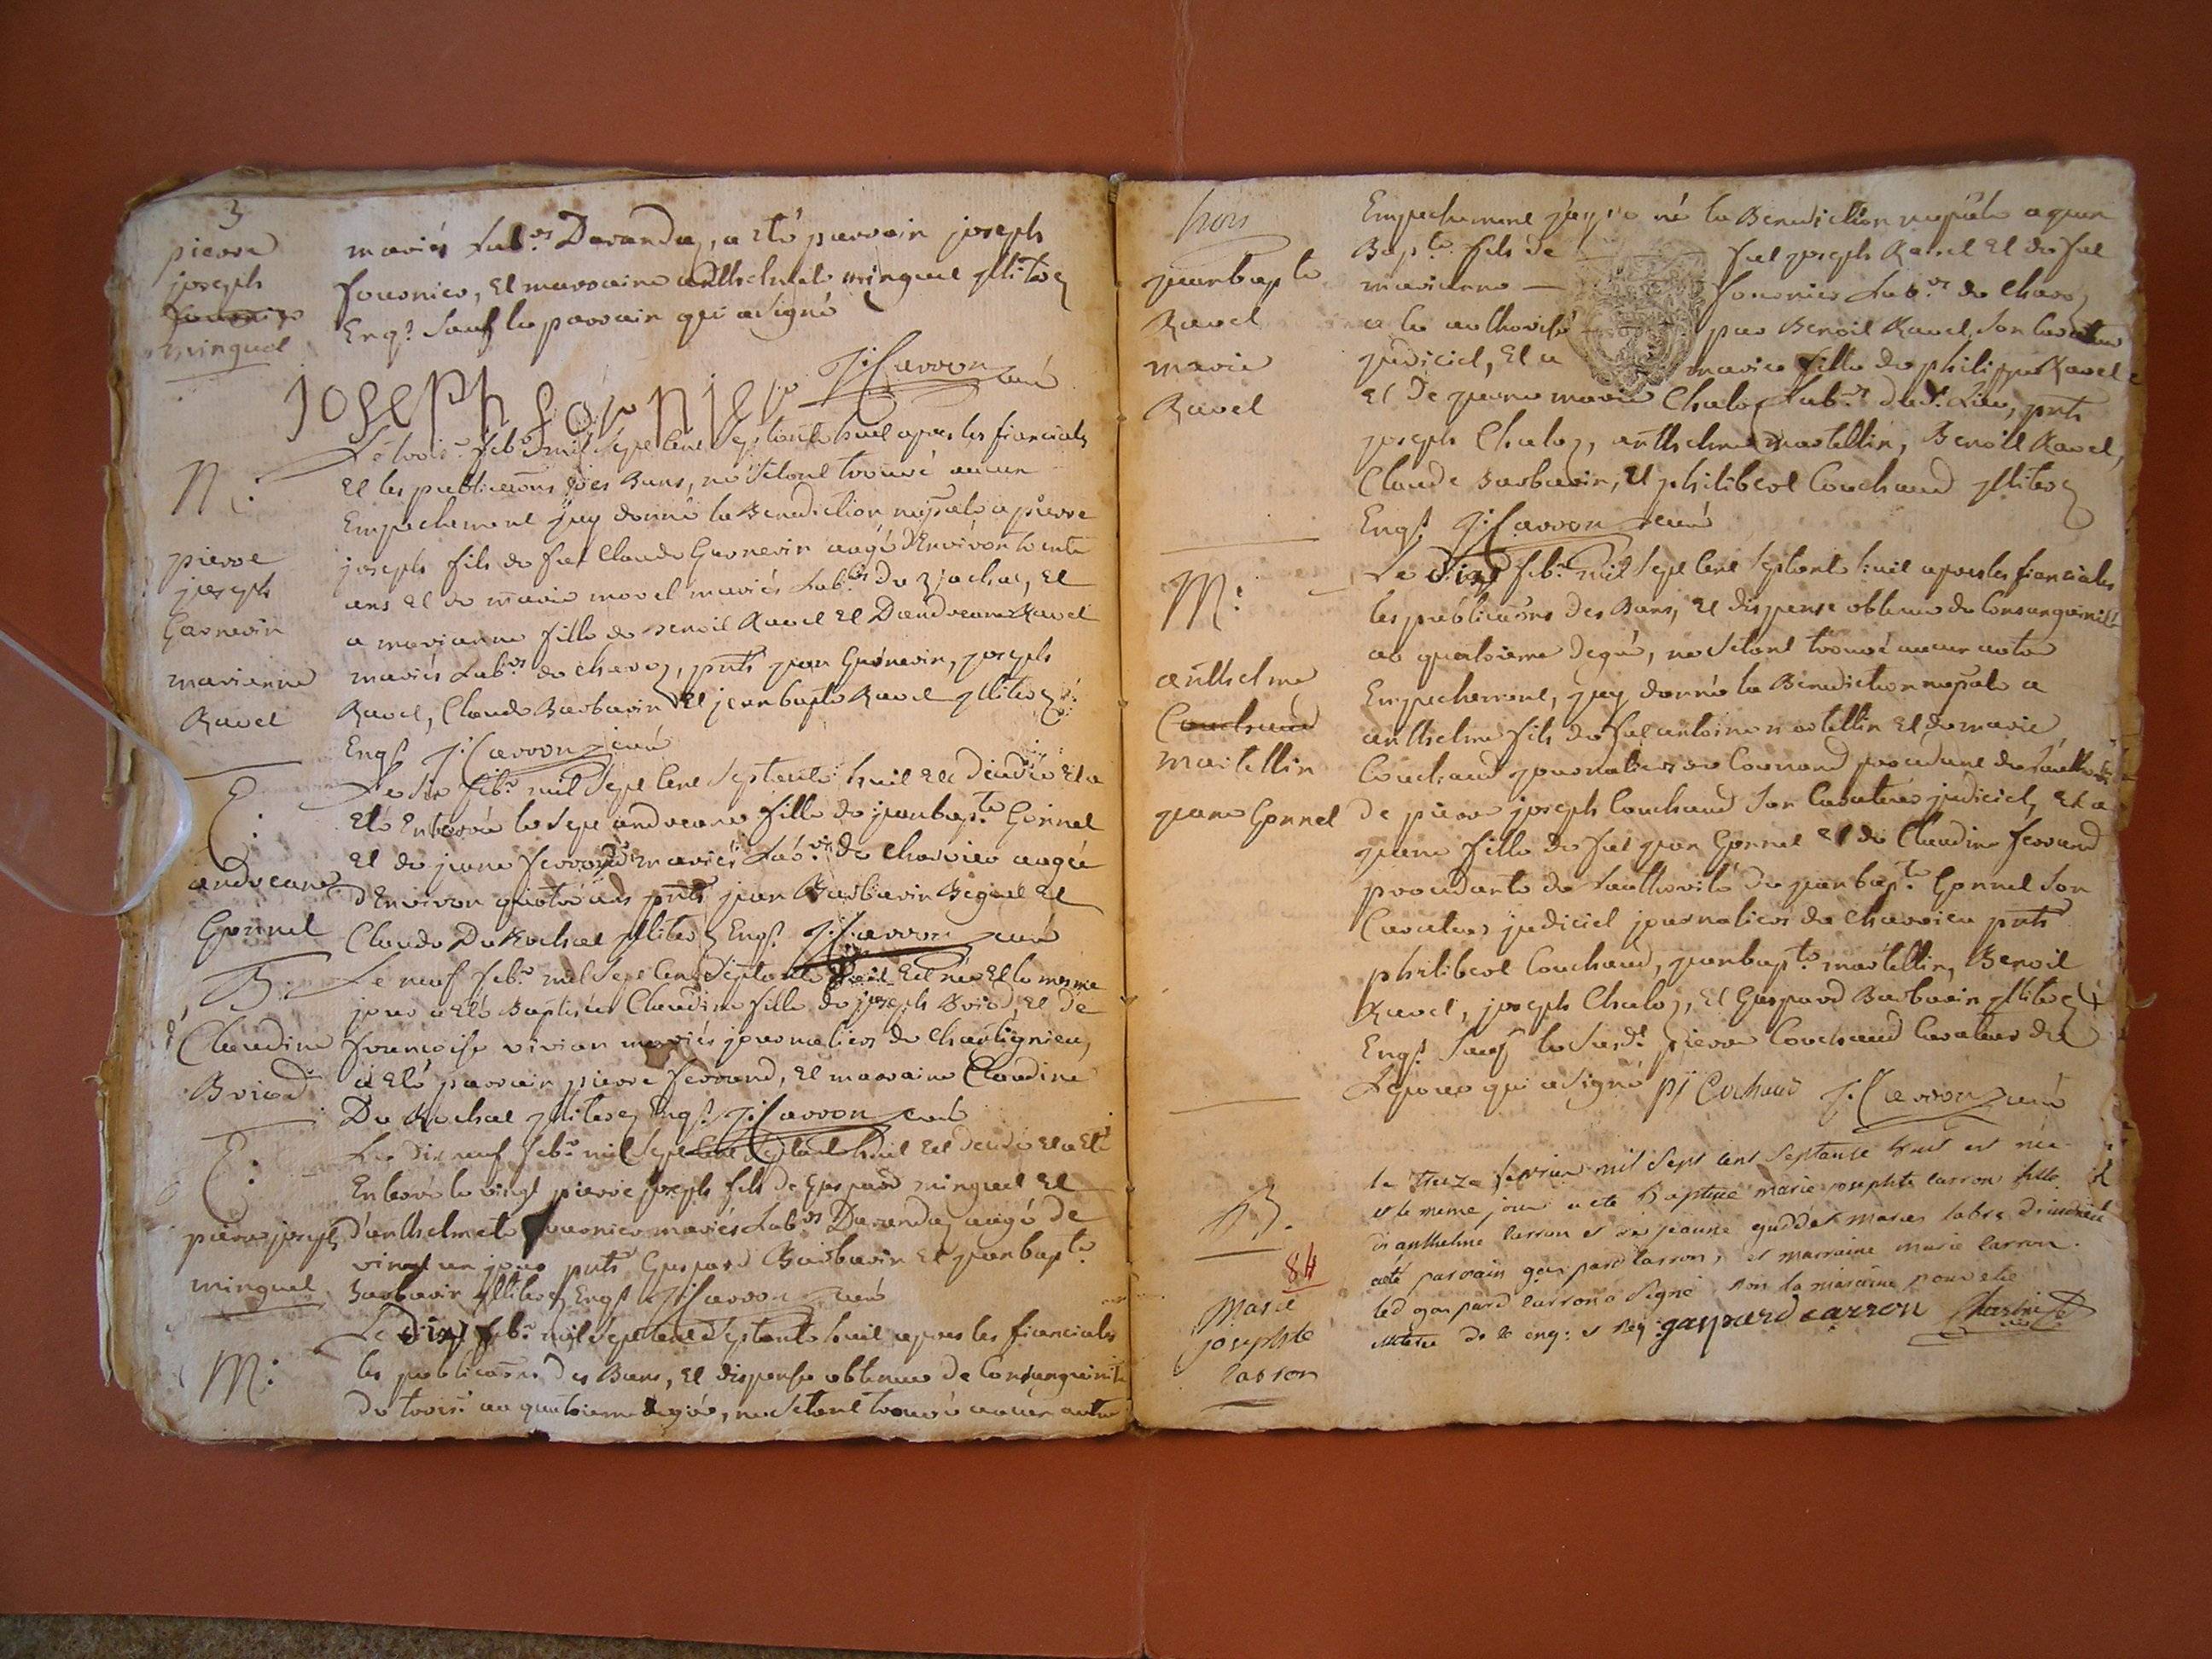 3
pierre
joseph
fournier
minguet
mariés Lab.rs Daranda, a eté parrain joseph
fournier, et marraine anthelmete minguet illiterez
Enq.s Sauf le parrain qui a signé
J: Carron curé
JOSEPH FOURNIER
M:
pierre
joseph
Garnerin
marianne
Ravel
Le trois.e feb.r mil Sept Cent Septante huit apres les fianciales
et les publications des Bans, ne s'etant trouvé aucun
Empechement j'ay donné la Benediction nup.ale a pierre
joseph fils de fut Claude Garnerin augé d'Environ trente
ans et de marie morel mariés Lab.rs de , et
a marianne fille de Benoit Ravel et D'andreane Ravel
mariés Lab.rs de charoz, pnts jean Garnerin, joseph
Ravel, Claude Barbarin et jeanbapte Ravel illiterez
Enq.s J: Carron curé
E:
andreane
Gonnel
Le Six feb.r mil Sept Cent Septante huit est decedée et a
eté Enterrée le Sept andreane fille de jeanbap.te Gonnel
et de jeane ferrand mariés Lab.rs de charvieu augée
d'Environ quatre ans pnts jean Barbarin Beguet et
Claude Du Rochat illiterez Enq.s J: Carron curé
B:
Claudine
Briod
Le neuf feb.r mil Sept Cent Septante huit est née et le mesme
jour a eté Baptisée Claudine fille de joseph Briod, et de
francoise vivian mariés journaliers de chartignieu,
a eté parrain pierre ferrand, et marraine Claudine
Du Rochat illiterez Enq.s J: Carron curé
E:
pierre joseph
minguet
Le Dix neuf feb.r mil Sept Cent Septante huit est decedé et a eté
Enterré le vingt pierre joseph fils de Gaspard minguet et
d'anthelmete fournier mariés Lab.rs Daranda augé de
vingt un jour pnts Gaspard Barbarin et jeanbap.te
Barbarin illiterez Enq.s J: Carron curé
M:
Le dix feb.r mil Sept Cent Septante huit apres les fianciales
les publications des Bans, et dispense obtenue de Consanguinité
du trois.e au quatrieme degré, ne s'etant trouvé aucun autre
trois
jeanbap.te
Ravel
marie
Ravel
Empechement j'ay né la Benediction nup.ale a jean
Bap.te fils de fut joseph Ravel et de fut
marianne fournier Lab.rs de charoz
a le authorisé par Benoit Ravel, Son Curateur
judiciel, et a marie fille de philippe Ravel
et de jeane marie Chaloz Lab.rs du d.t Lieu, pnts
joseph Chaloz, anthelme martellin, Benoit Ravel,
Claude Barbarin, et philibert Couchaud illiterez
Enq.s J: Carron curé
M:
anthelme
Couchaud
martellin
jeane Gonnel
Le dix feb.r mil Sept Cent Septante huit apres les fianciales
les publications des Bans, et dispense obtenue de Consanguinité
au quatrieme degré, ne s'etant trouvé aucun autre
Empechement, j'ay donné la Benediction nup.ale a
anthelme fils de fut antoine martellin et de marie
Couchaud journaliers procedant de l'authorité
de pierre joseph Couchaud Son Curateur judiciel, et a
jeane fille de fut jean Gonnel et de Claudine ferrand
procedante de l'authorité de jeanbap.te Gonnel Son
Curateur judiciel journaliers de charvieu pnts
philibert Couchaud, jeanbap.te martellin, Benoit
Ravel, joseph Chaloz, et Gaspard Barbarin illiterez
Enq.s Sauf le Susd.t pierre Couchaud Curateur de
L'epoux qui a signé pj Cochaud J: Carron curé
B.
84
Marie
josephte
Carron
le treize fevrier mil Sept cent Septante huit est née
et le meme jour a eté Baptisée marie josephte carron fille
d'anthelme carron et de jeanne guddet maries labrs
aeté parrain gaspard carron, et marraine marie carron.
led gaspard carron a Signé non la maraine pour etre
illiterée de ce enq: et req: gaspard carron